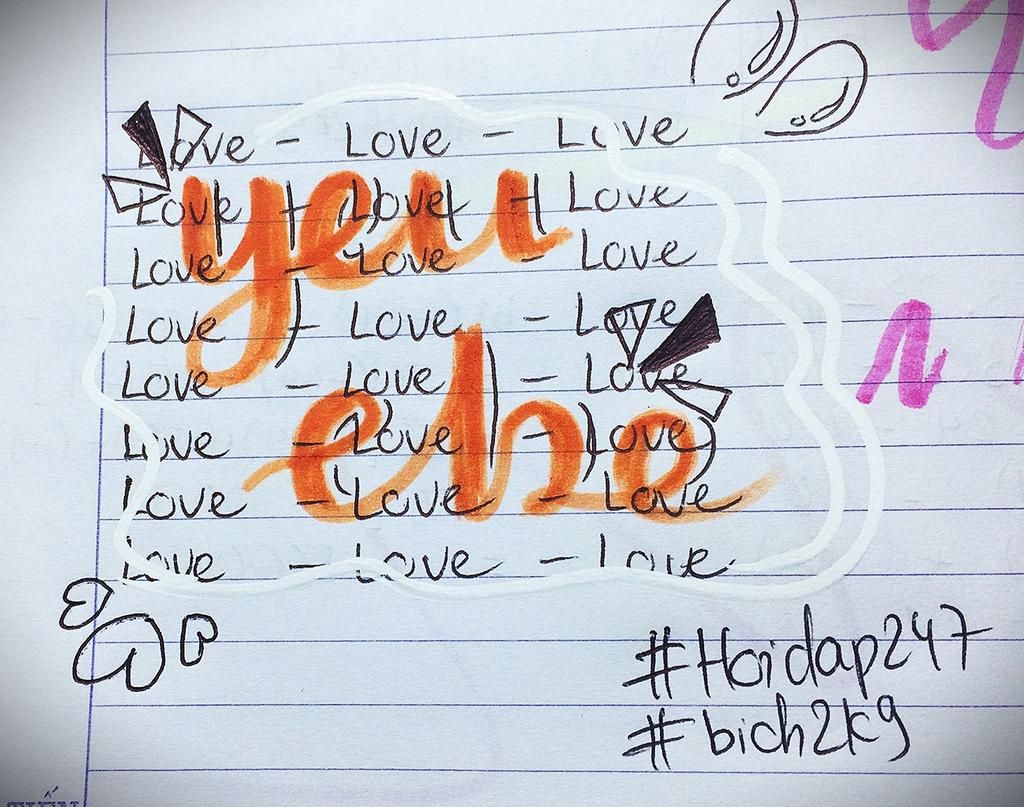 Love - Love - Love
Love - Love - Love
Love - Love - Love
Love - Love - Love
Love - Love - Love
Love - Love - Love
Love - Love - Love
Love - Love - Love
yeu
cho
#Hoidap247
#bich2k9